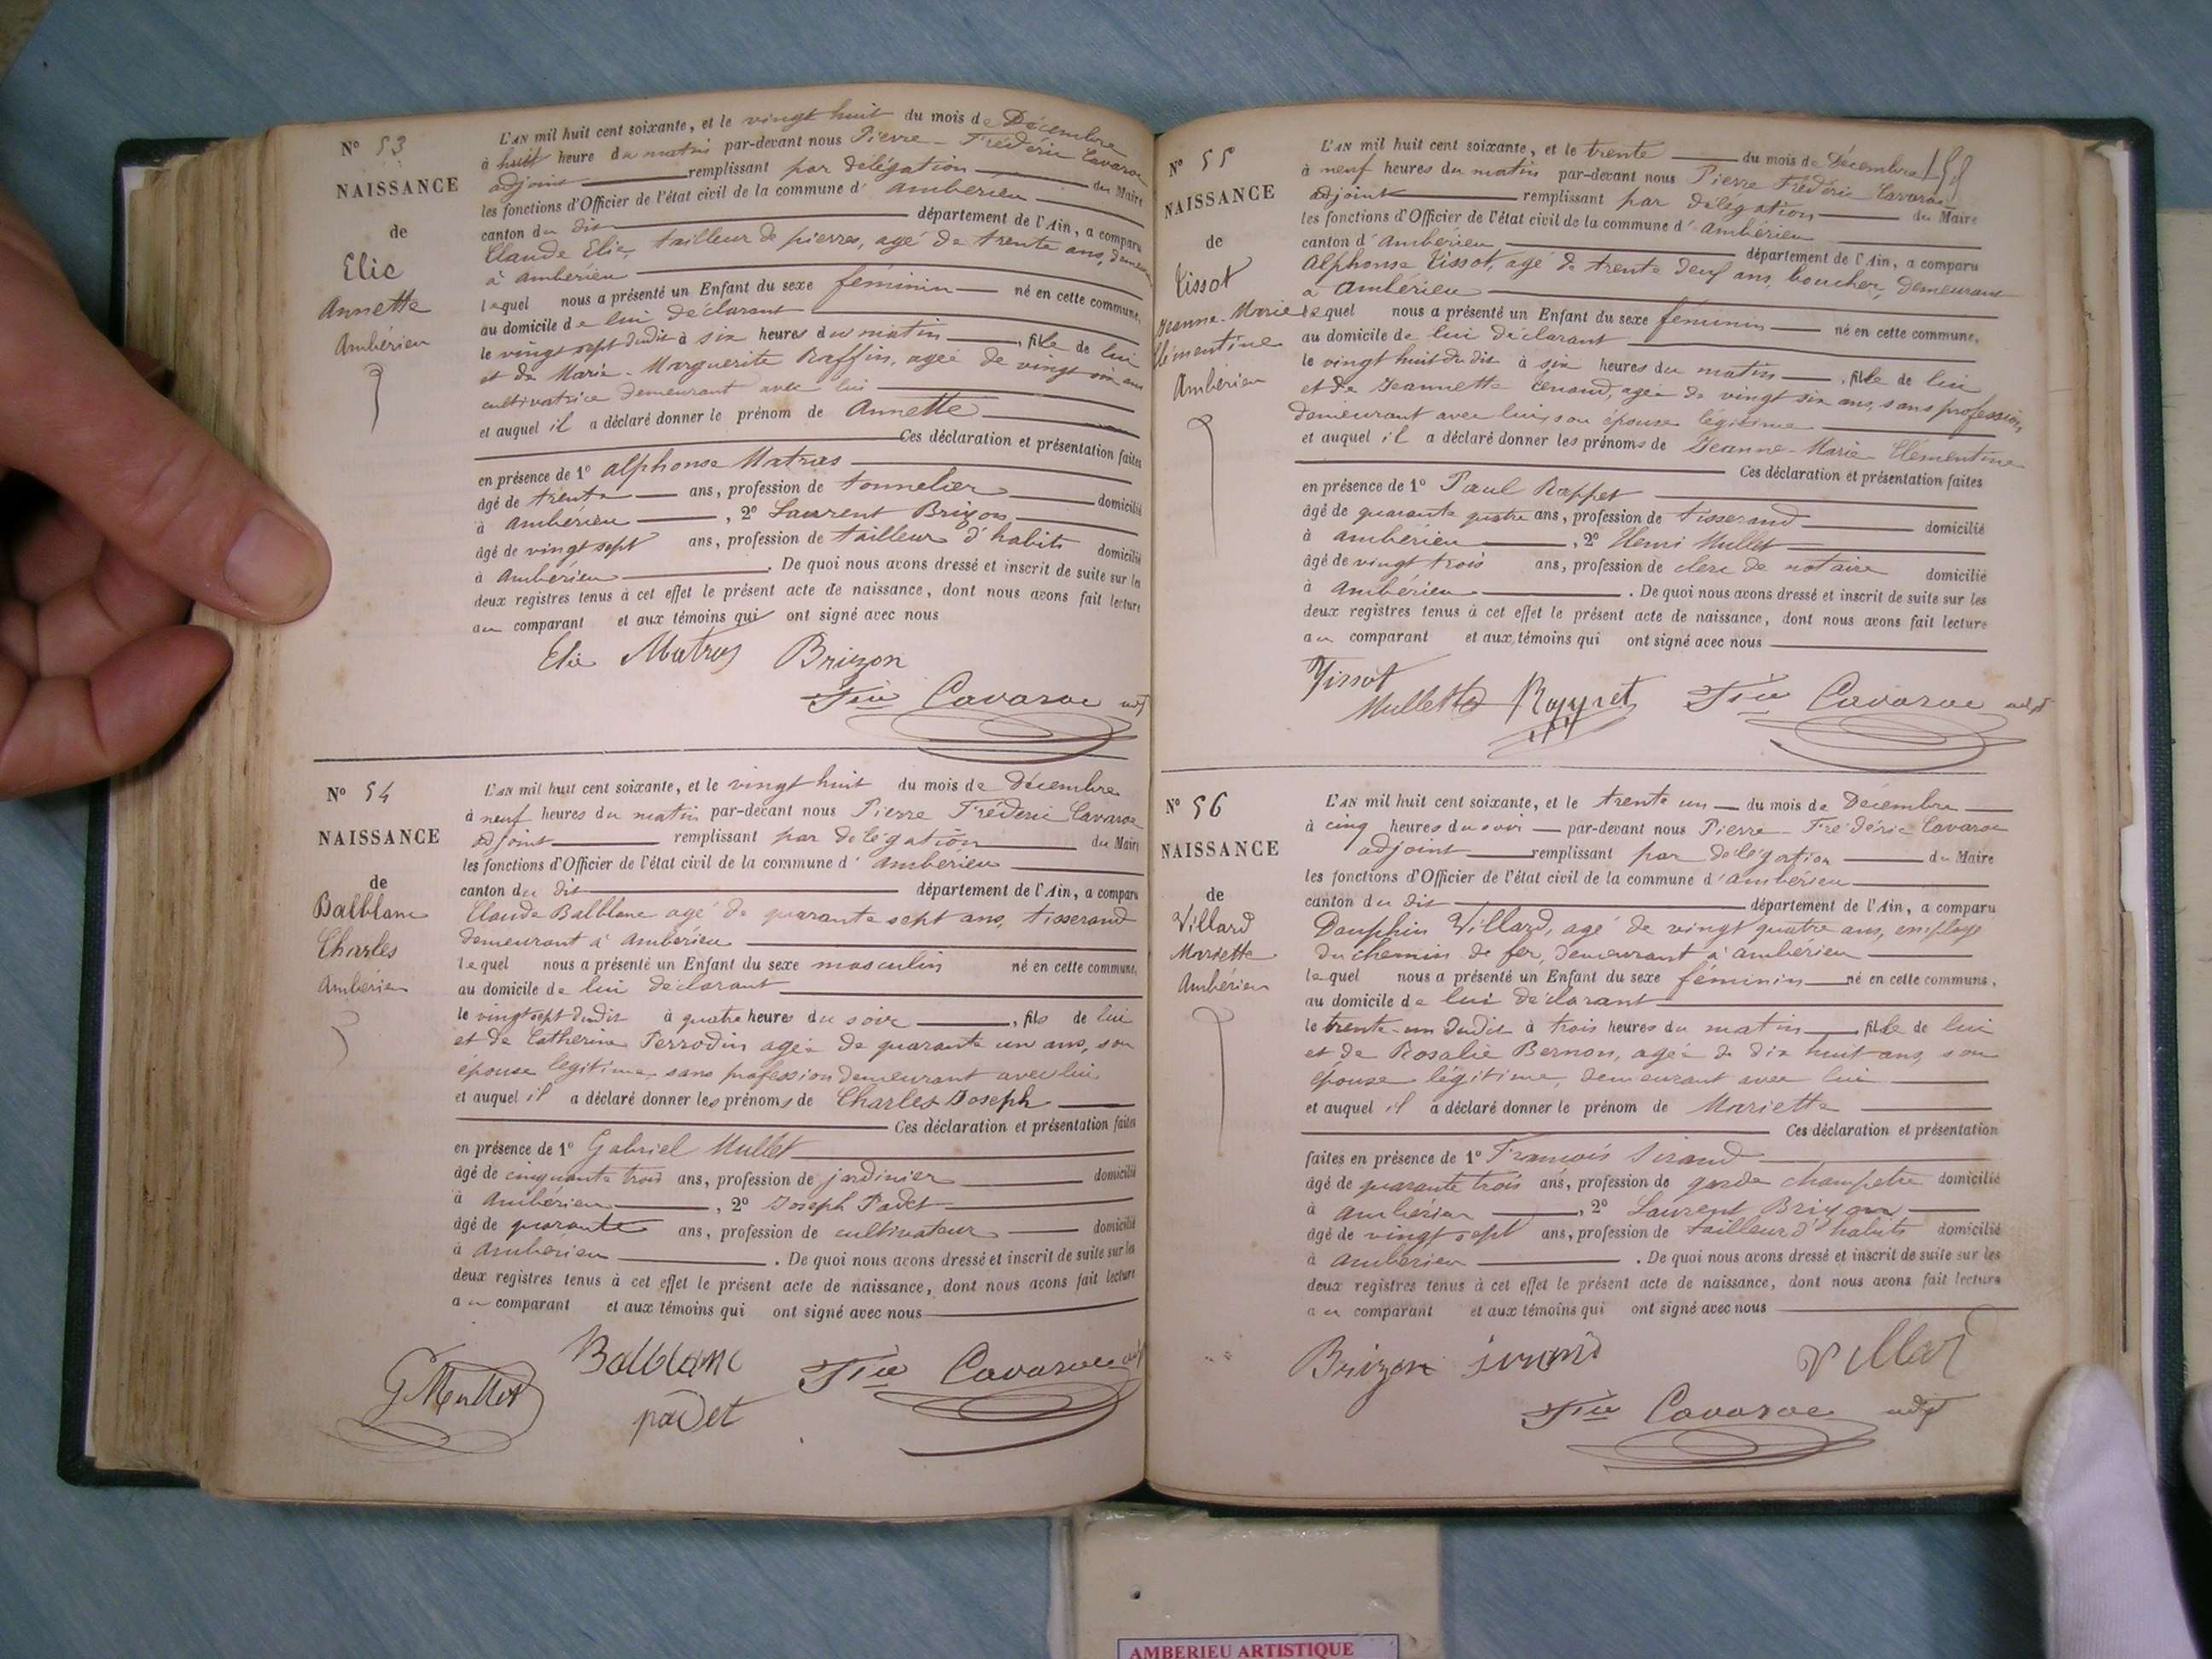 N° 53
NAISSANCE
de
Elie
Annette
Ambérieu
L'AN mil huit cent soixante, et le vingt huit du mois de Décembre
à huit heure du matin par-devant nous Pierre-Fréderic Cavaroc
adjoint remplissant par délégation du Maire
les fonctions d'Officier de l'état civil de la commune d'ambérieu
canton du dit département de l'Ain, a comparu
Claude Elie, tailleur de pierres, agé de trente ans,
à ambérieu
lequel nous a présenté un Enfant du sexe féminin né en cette commune,
au domicile de lui déclarant
le vingt sept dudit à six heures du matin, fille de lui
et de Marie-Marguerite Raffin, agée de vingt ans
cultivatrice demeurant avec lui
et auquel il a déclaré donner le prénom de Annette
Ces déclaration et présentation faites
en présence de 1° alphonse Matras
âgé de trente ans, profession de tonnelier domicilié
à ambérieu, 2° Laurent Brizon
âgé de vingt sept ans, profession de tailleur d'habits domicilié
à ambérieu. De quoi nous avons dressé et inscrit de suite sur les
deux registres tenus à cet effet le présent acte de naissance, dont nous avons fait lecture
au comparant et aux témoins qui ont signé avec nous
Elie Matras Brizon
Fric Cavaroc adjt
N° 54
NAISSANCE
de
Balblanc
Charles
Ambérieu
L'AN mil huit cent soixante, et le vingt huit du mois de décembre
à neuf heures du matin par-devant nous Pierre Fréderic Cavaroc
adjoint remplissant par délégation du Maire
les fonctions d'Officier de l'état civil de la commune d'ambérieu
canton du dit département de l'Ain, a comparu
Claude Balblanc agé de quarante sept ans, tisserand
demeurant à ambérieu
lequel nous a présenté un Enfant du sexe masculin né en cette commune,
au domicile de lui déclarant
le vingt sept dudit à quatre heures du soir, fils de lui
et de Catherine Perrodin agée de quarante un ans, son
épouse légitime, sans profession demeurant avec lui
et auquel il a déclaré donner les prénoms de Charles Joseph
Ces déclaration et présentation faites
en présence de 1° Gabriel Mullet
âgé de cinquante trois ans, profession de jardinier domicilié
à ambérieu, 2° Joseph Padet
âgé de quarante ans, profession de cultivateur domicilié
à ambérieu. De quoi nous avons dressé et inscrit de suite sur les
deux registres tenus à cet effet le présent acte de naissance, dont nous avons fait lecture
au comparant et aux témoins qui ont signé avec nous
G Mullet Balblanc padet Fric Cavaroc adjt
N° 55
NAISSANCE
de
Tissot
Jeanne-Marie
Clémentine
Ambérieu
L'AN mil huit cent soixante, et le trente du mois de Décembre
à neuf heures du matin par-devant nous Pierre Fréderic Cavaroc
adjoint remplissant par délégation du Maire
les fonctions d'Officier de l'état civil de la commune d'ambérieu
canton d'ambérieu, département de l'Ain, a comparu
Alphonse Tissot, agé de trente deux ans, boucher, demeurant
à Ambérieu
lequel nous a présenté un Enfant du sexe féminin né en cette commune,
au domicile de lui déclarant
le vingt huit du dit à six heures du matin, fille de lui
et de Jeannette agée de vingt six ans, sans profession,
demeurant avec lui, son épouse légitime
et auquel il a déclaré donner les prénoms de Jeanne-Marie Clémentine
Ces déclaration et présentation faites
en présence de 1° Paul Rappet
âgé de quarante quatre ans, profession de tisserand domicilié
à ambérieu, 2° Henri Mullet
âgé de vingt trois ans, profession de clerc de notaire domicilié
à ambérieu. De quoi nous avons dressé et inscrit de suite sur les
deux registres tenus à cet effet le présent acte de naissance, dont nous avons fait lecture
au comparant et aux témoins qui ont signé avec nous
Tissot
Mullet Fric Cavaroc adjt
N° 56
NAISSANCE
de
Villard
Mariette
Ambérieu
L'AN mil huit cent soixante, et le trente un du mois de Décembre
à cinq heures du soir par-devant nous Pierre-Fréderic Cavaroc
adjoint remplissant par délégation du Maire
les fonctions d'Officier de l'état civil de la commune d'ambérieu
canton du dit département de l'Ain, a comparu
Dauphin Villard, agé de vingt quatre ans, employé
du chemin de fer, demeurant à ambérieu
lequel nous a présenté un Enfant du sexe féminin né en cette commune,
au domicile de lui déclarant
le trente-un dudit à trois heures du matin, fille de lui
et de Rosalie Bernon, agée de dix huit ans, son
épouse légitime, demeurant avec lui
et auquel il a déclaré donner le prénom de Mariette
Ces déclaration et présentation
faites en présence de 1° François Sirand
âgé de quarante trois ans, profession de garde champetre domicilié
à ambérieu, 2° Laurent Brizon
âgé de vingt sept ans, profession de tailleur d'habits domicilié
à ambérieu. De quoi nous avons dressé et inscrit de suite sur les
deux registres tenus à cet effet le présent acte de naissance, dont nous avons fait lecture
au comparant et aux témoins qui ont signé avec nous
Brizon sirand Villard
Fric Cavaroc adjt
AMBERIEU ARTISTIQUE